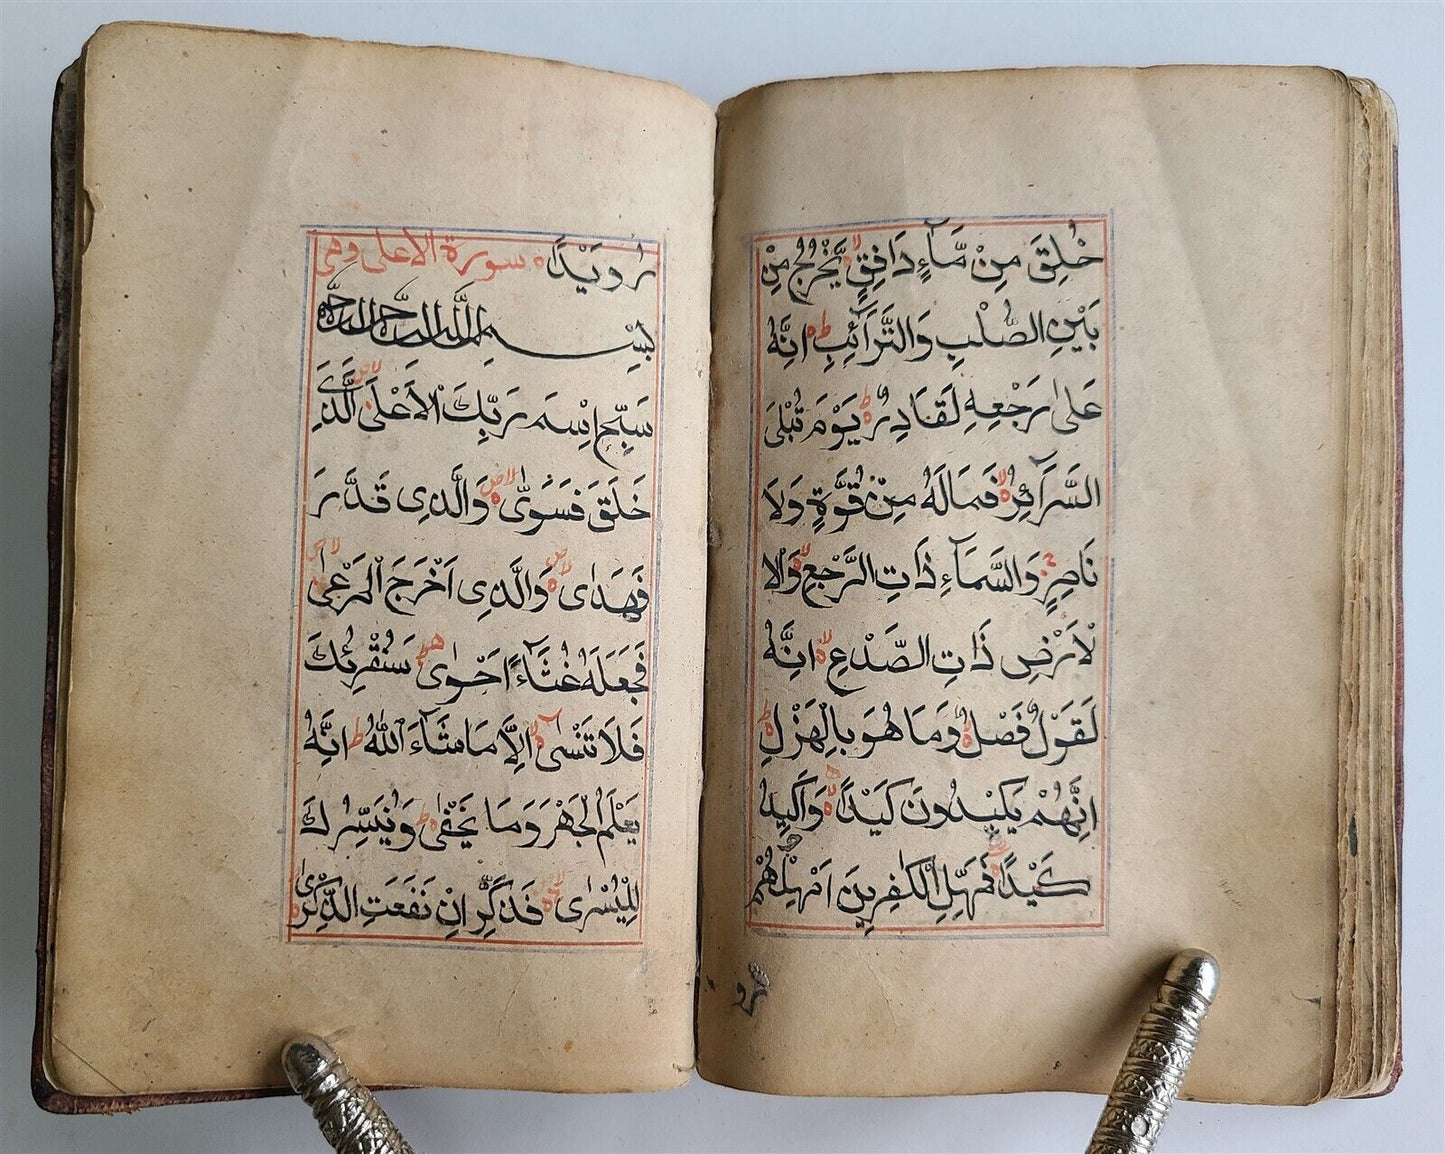 خُلِقَ مِنْ مَّآءٍ دَافِقٍ لا يَّخْرُجُ مِنْ
بَيْنِ الصُّلْبِ وَالتَّرَآئِبِ ط اِنَّهٗ
عَلىٰ رَجْعِهٖ لَقَادِرٌ ط يَوْمَ تُبْلَى
السَّرَآئِرُ لا فَمَالَهٗ مِنْ قُوَّةٍ وَلَا
نَاصِرٍ وَالسَّمَآءِ ذَاتِ الرَّجْعِ لا وَالْا
لْاَرْضِ ذَاتِ الصَّدْعِ لا اِنَّهٗ
لَقَوْلٌ فَصْلٌ لا وَمَا هُوَ بِالْهَزْلِ ط
اِنَّهُمْ يَكِيْدُونَ كَيْدًا لا وَاَكِيْدُ
كَيْدًا فَمَهِّلِ الْكٰفِرِيْنَ اَمْهِلْهُمْ
رو
رُوَيْدًا سورة الاعلى وهى
بِسْمِ اللّٰهِ الرَّحْمٰنِ الرَّحِيْمِ
سَبِّحِ اسْمَ رَبِّكَ الْاَعْلَى لا الَّذِىْ
خَلَقَ فَسَوّٰى لا ص وَالَّذِى قَدَّرَ
فَهَدٰى لا ص وَالَّذِى اَخْرَجَ الْمَرْعٰى لا ص
فَجَعَلَهٗ غُثَآءً اَحْوٰى ط سَنُقْرِئُكَ
فَلَا تَنْسٰى لا اِلَّا مَا شَآءَ اللّٰهُ ط اِنَّهٗ
يَعْلَمُ الْجَهْرَ وَمَا يَخْفٰى ط وَنُيَسِّرُكَ
لِلْيُسْرٰى فَذَكِّرْ اِنْ نَفَعَتِ الذِّكْرٰى